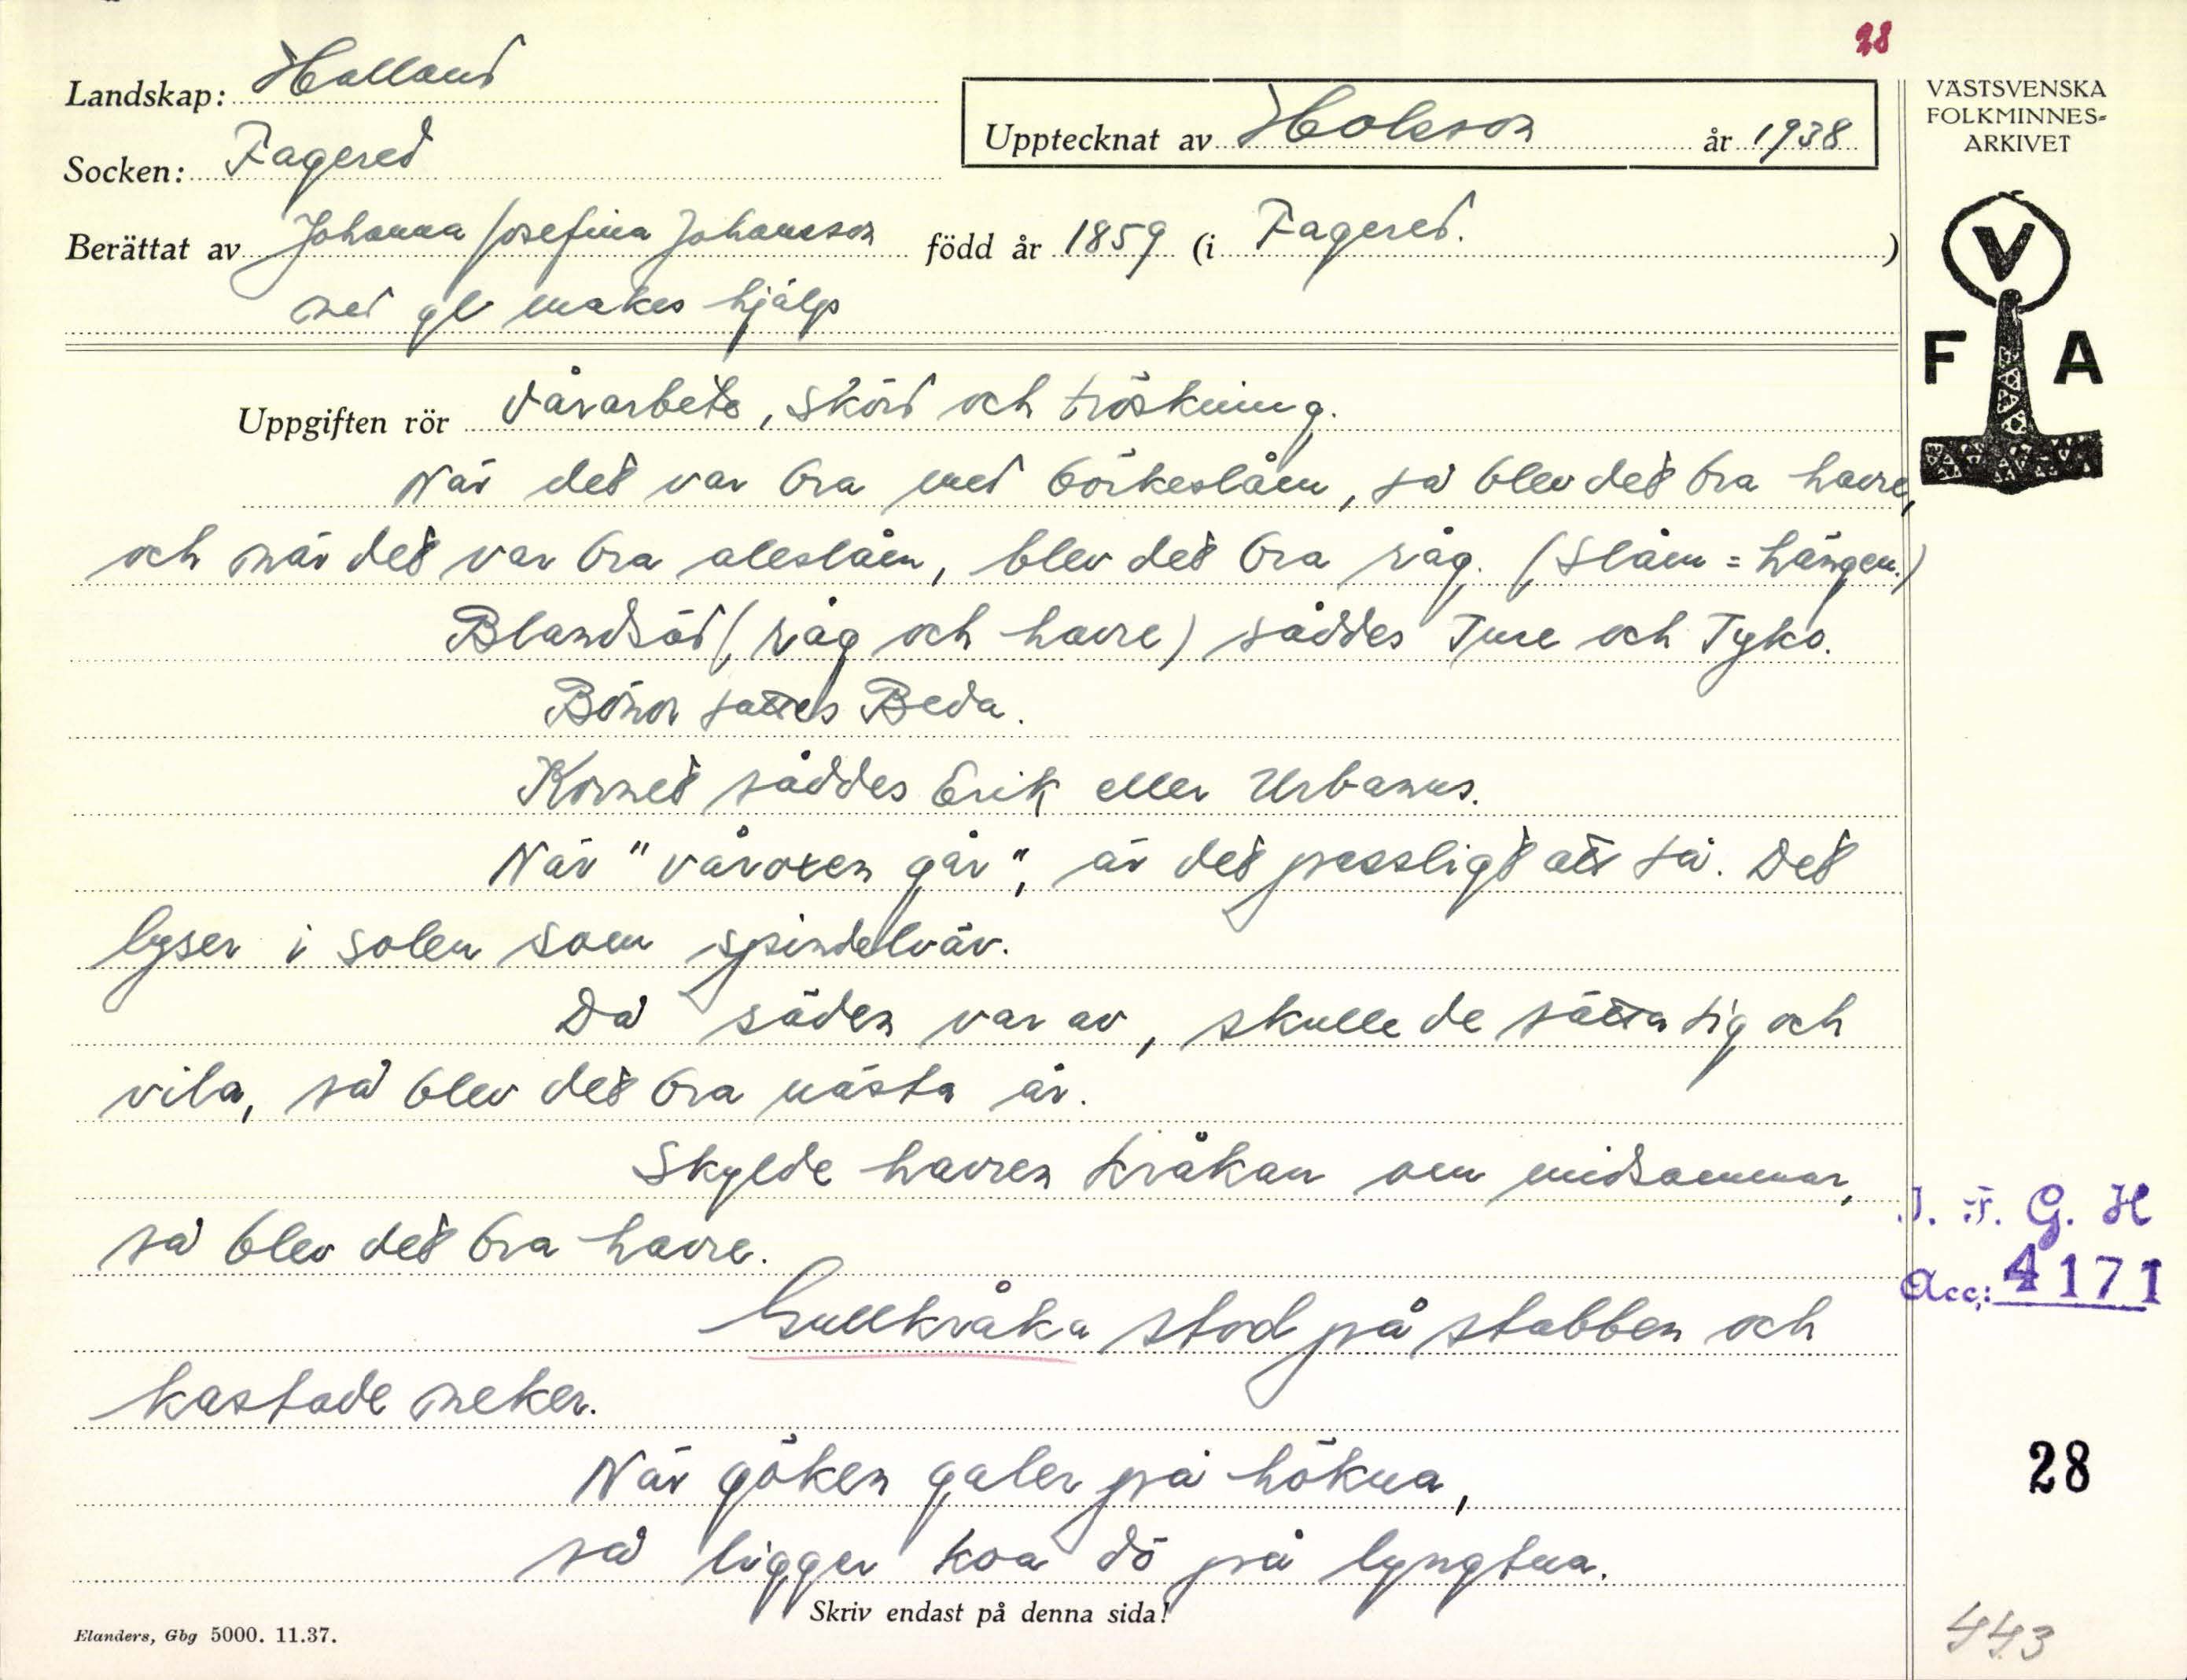 28
Landskap: Halland
Socken: Fagered
Upptecknat av Hokson år 1938
Berättat av Johanna Josefina Johansson född år 1859 (i Fagered.)
med gl makes hjälp
VÄSTSVENSKA
FOLKMINNES-
ARKIVET
V
F A
Uppgiften rör Vårarbete, skörd och tröskning.
När det var bra med börkeslåen, så blev det bra havre,
och när det var bra aleslåen, blev det bra råg. (Slåen = hängen.)
Blandsäd (råg och havre) såddes Ture och Tyko.
Bönor sattes Beda.
Kornet såddes Erik eller Urbanus.
När "våroxen går", är det passligt att så. Det
lyser i solen som spindelväv.
Då säden var av, skulle de sätta sig och
vila, så blev det bra nästa år.
Skylde havren kråkan om midsommar,
så blev det bra havre.
Gullkråka stod på stabben och
kastade neker.
När göken galer på hökua,
så ligger koa dö på lyngtua.
J. F. G. H
Acc: 4171
28
443
Skriv endast på denna sida!
Elanders, Gbg 5000. 11.37.